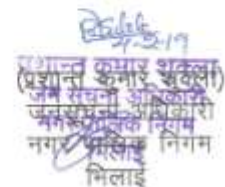 प्रशान्त कुमार शुक्ला
(प्रशान्त कुमार शुक्ला)
जन सूचना अधिकारी
जनसूचना अधिकारी
नगर पालिक निगम
नगर पालिक निगम
भिलाई
भिलाई